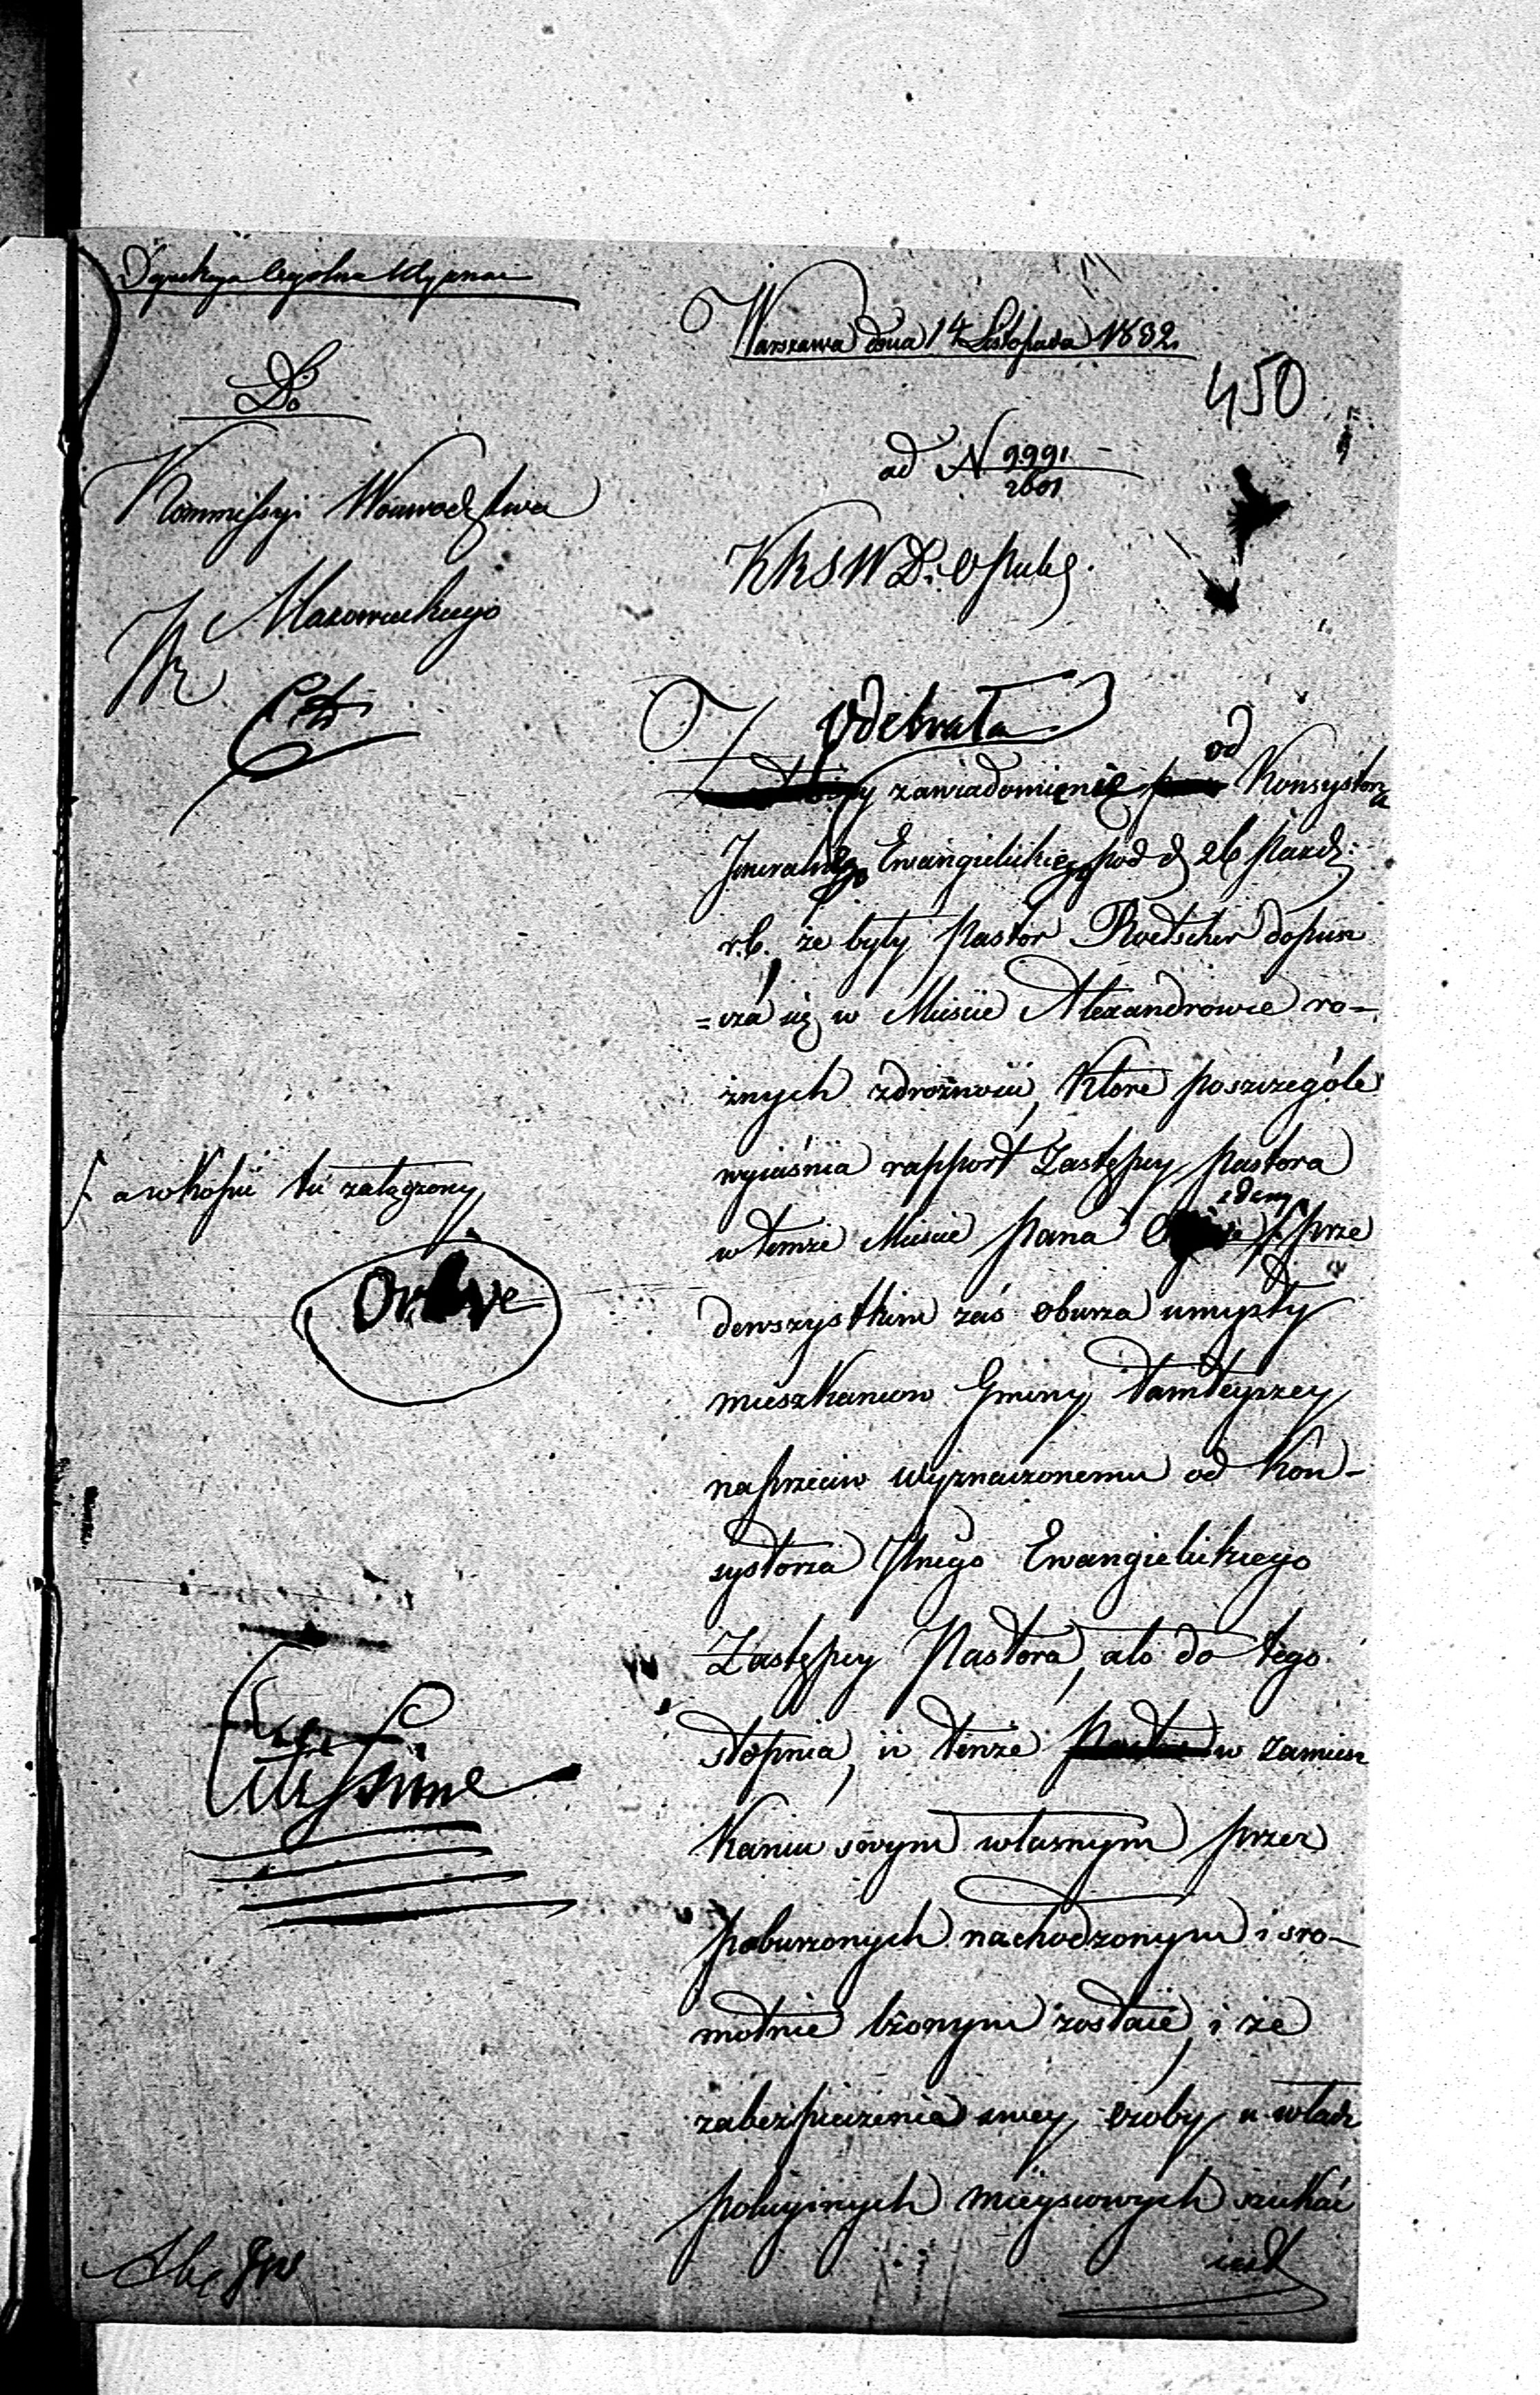 Warszawa dnia 14 Listopada 1832.
450
Do
Kommissyi Woiewodztwa
Mazowieckiego
ad N 9991
2601
KRSWD. i O. publ.
Odebrała
zawiadomienie od Konsystorza
Jeneralnego Ewangielickiego pod d 26 Pazdz:
r.b. że były Pastor Roetscher dopusz
=cza się w Mieście Alexandrowie ro-
żnych zdrożności, które poszczególe
wyiaśnia rapport Zastępcy Pastora
w temże Mieście Pana prze
dewszystkim zaś oburza umysły
mieszkancow Gminy tamteyszey
naprzeciw wyznaczonemu od Kon-
systorza Jlnego Ewangielickiego
Zastępcy Pastora, a to do tego
stopnia, iż tenże w zamiesz
kaniu swym własnym przez
poburzonych nachodzonym i sro-
motnie lżonym zostaie, i że
zabezpieczenia swey osoby u władz
policyinych mieyscowych szukać
iest
a w kopii tu załączony